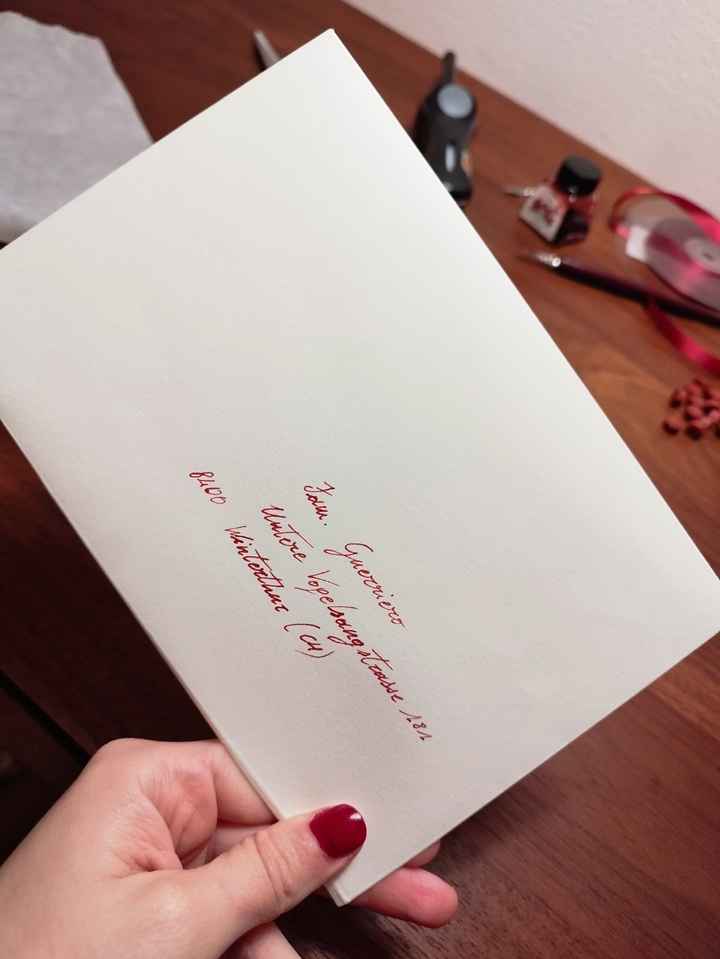 Fam. Guerriero
Untere Vogelsangstrasse 181
8400 Winterthur (CH)